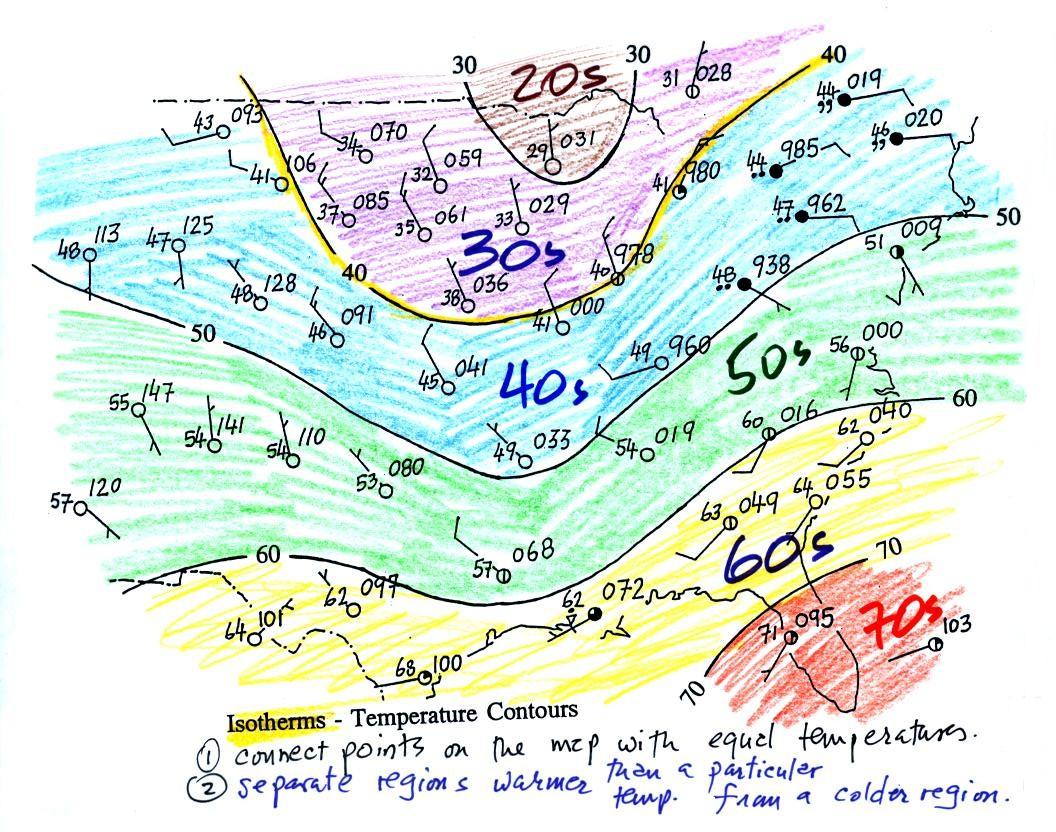 30 20s 30 40
31 028
44 019
43 093
34 070
29 031
46 020
41 106
32 059
41 980
44 985
37 085
35 061
33 029
47 962
50
48 113
47 125
30s
40 978
51 009
48 128
40
38 036
48 938
46 091
41 000
50
45 041
40s
49 960
50s
56 000
55 147
54 141
54 110
49 033
54 019
60 016
60
62 040
57 120
53 080
63 049
64 055
60
57 068
60s
70
62 097
62 072
70s
64 101
71 095
103
68 100
70
Isotherms - Temperature Contours
① connect points on the map with equal temperatures.
② separate regions warmer than a particular
temp. from a colder region.